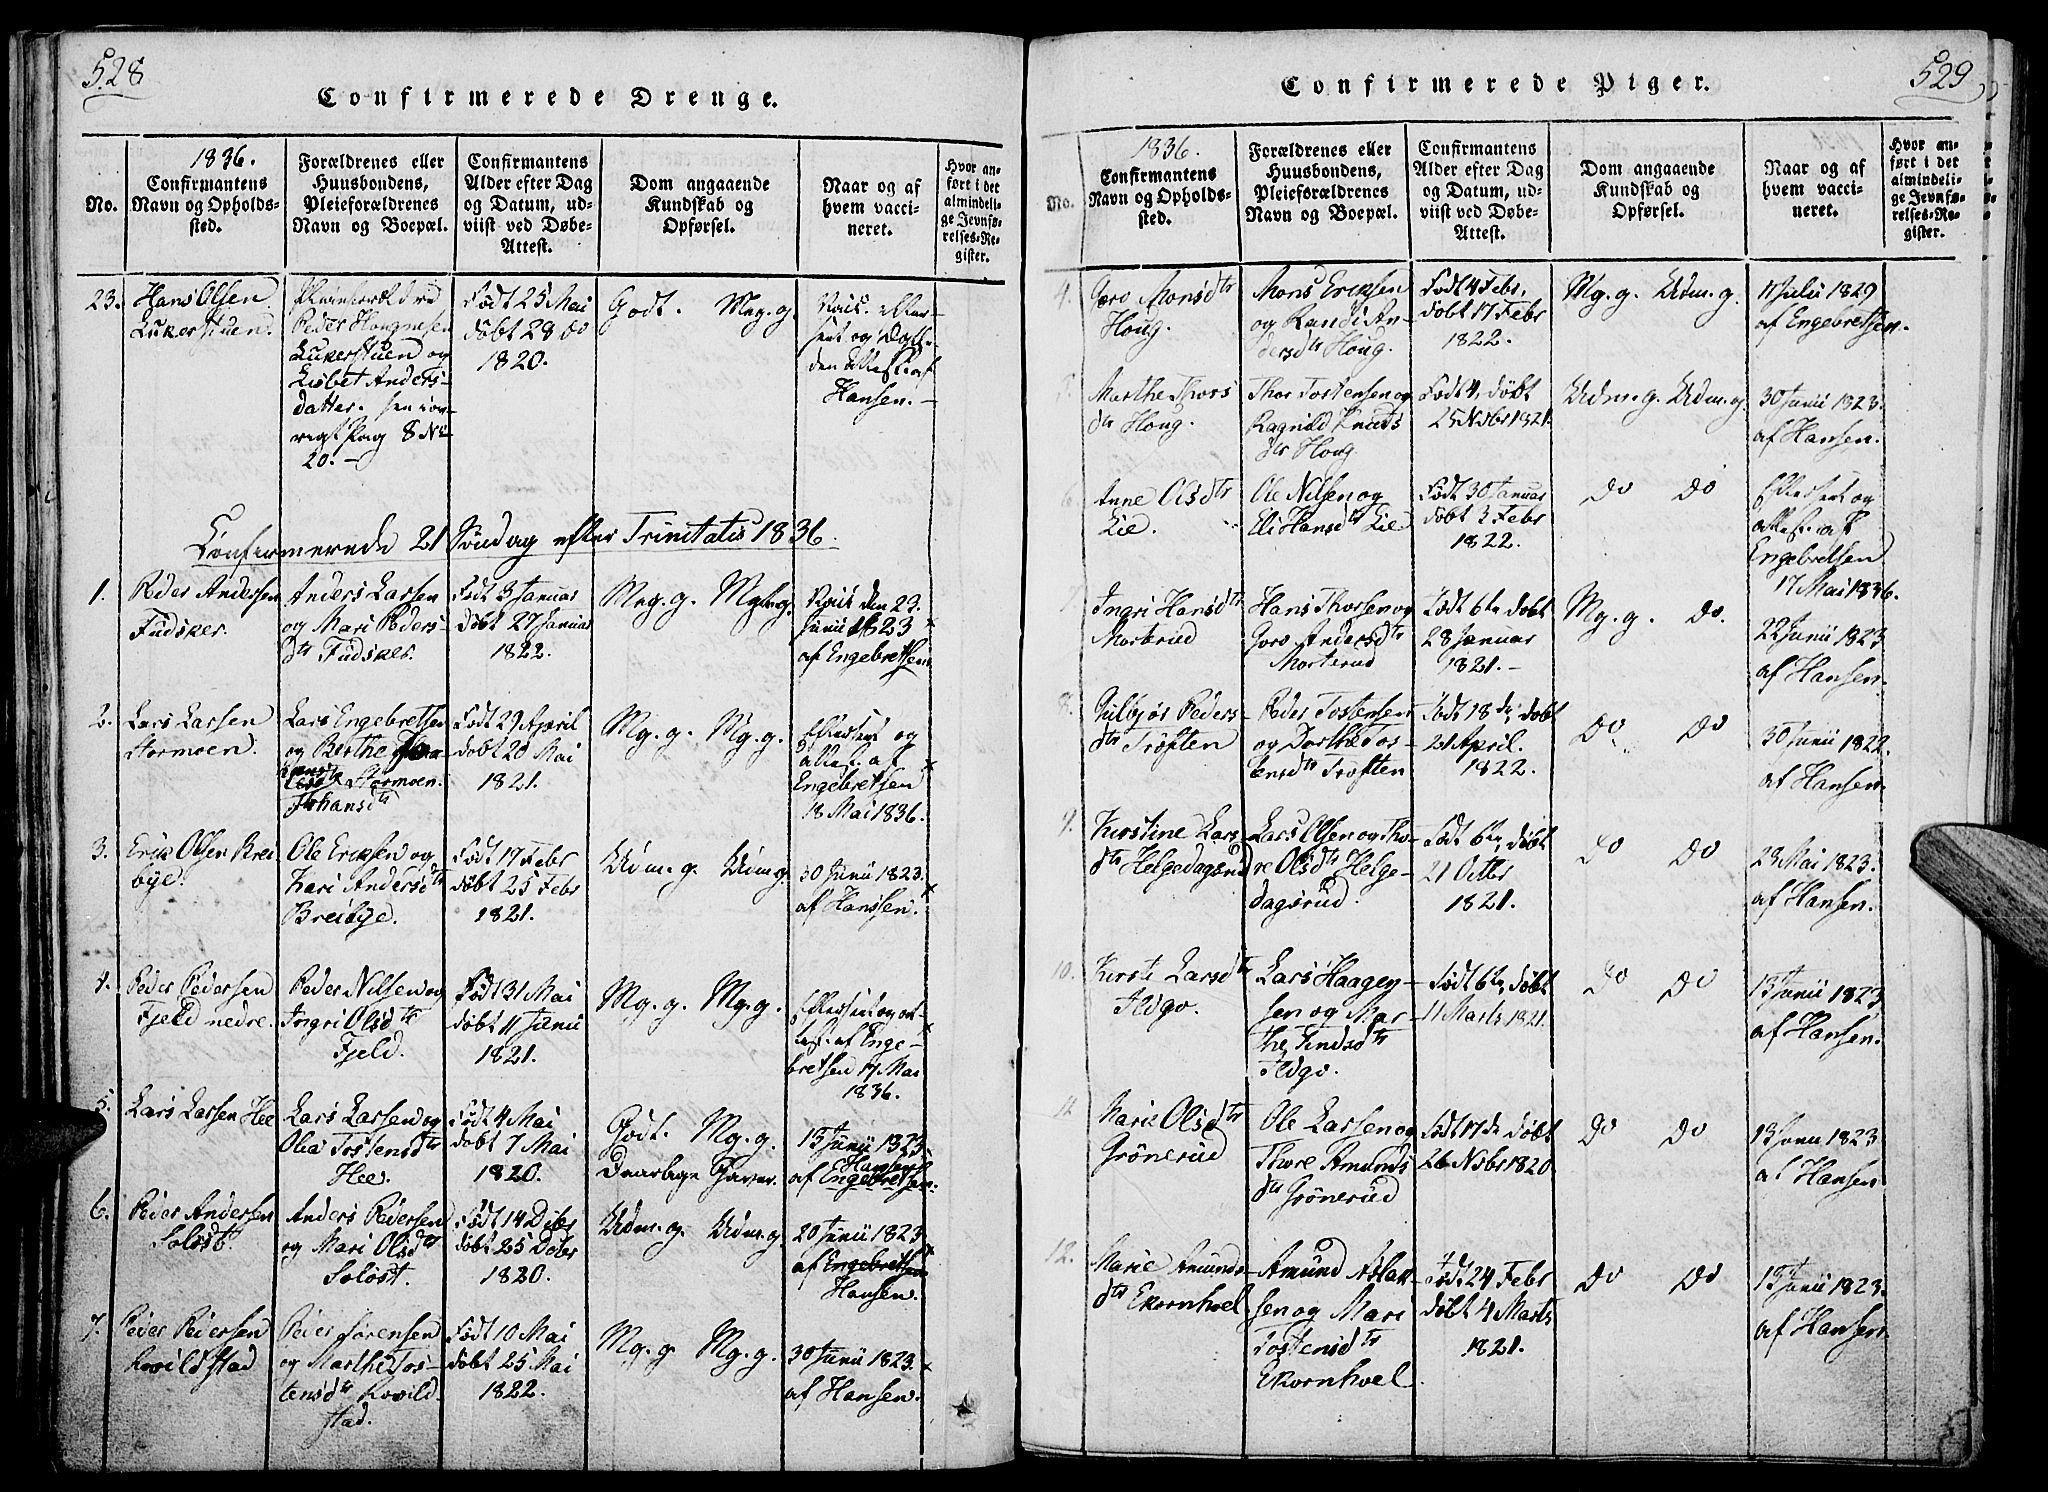 528
Confirmerede Drenge.
No.
1836.
Confirmantens
Navn og Opholds-
sted.
Forældrenes eller
Huusbondens,
Pleieforældrenes
Navn og Boepæl.
Confirmantens
Alder efter Dag
og Datum, ud-
viist ved Døbe-
Attest.
Dom angaaende
Kundskab og
Opførsel.
Naar og af
hvem vacci-
neret.
Hvor an-
ført i det
almindeli-
ge Jevnfø-
relses-Re-
gister.
23.
Hans Olsen
Lukerstuen.
Peder
Lukerstuen og
Lisbet Anders-
datter.
Pag 8 No
20.-
Født 25 Mai
døbt 28 do
1820.
Godt. Meg.g.
Hansen.-
Confirmerede 21 Søndag efter Trinitatis 1836.
1.
Peder Andersen
Fudsker.
Anders Larsen
og Mari Peders-
dtr Fudsker.
Født 3 Januar
Døbt 27 Januar
1822.
Meg.g. Meg.g.
den 23.
Junii 1823
af Engebretsen
2.
Lars Larsen
Stormoen.
Lars Engebretsen
og Berthe
Stormoen.
Johansdtr
Født 29 April
døbt 20 Mai
1821.
Mg.g. Mg.g.
Efterseet og
attest. af
Engebretsen
18 Mai 1836.
3.
Erik Olsen Brei-
bye.
Ole Eriksen og
Kari Andersdtr
Breibye.
Født 17 Febr
døbt 25 Febr
1821.
Udm.g. Udm.g.
30 Junii 1823.
af Hansen.
4.
Peder Pedersen
Fjeld nedre.
Peder Nilsen og
Ingri Olsdtr
Fjeld.
Født 31 Mai
døbt 11 Junii
1821.
Mg.g. Mg.g.
Efterseet og at-
test. af Enge-
bretsen 17 Mai
1836.
5.
Lars Larsen Hee
Lars Larsen og
Olea Tostensdtr
Hee.
Født 4 Mai
døbt 7 Mai
1820.
Godt. Mg.g.
Daarlige Gaver.
13 Junii 1823
Hansen
af Engebretsen.
6.
Peder Andersen
Soløst.
Anders Pedersen
og Mari Olsdtr
Soløst.
Født 14 Dcbr
døbt 25 Dcbr
1820.
Udm.g. Udm.g.
20 Junii 1823
af Engebretsen
Hansen.
7.
Peder Pedersen
Rovildstad
Peder Sørensen
og Marthe Tos-
tensdtr Rovild-
stad.
Født 10 Mai
døbt 25 Mai
1822.
Mg.g Mg.g.
30 Junii 1823.
af Hansen.
529
Confirmerede Piger.
No.
1836.
Confirmantens
Navn og Opholds-
sted.
Forældrenes eller
Huusbondens,
Pleieforældrenes
Navn og Boepæl.
Confirmantens
Alder efter Dag
og Datum, ud-
viist ved Døbe-
Attest.
Dom angaaende
Kundskab og
Opførsel.
Naar og af
hvem vacci-
neret.
Hvor an-
ført i det
almindeli-
ge Jevnfø-
relses-Re-
gister.
4.
Goro Monsdtr
Houg.
Mons Eriksen
og Randi An-
dersdtr Houg.
Født 4 Febr,
døbt 17 Febr
1822.
Mg.g. Udm.g.
11 Julii 1829
af Engebretsen.
5.
Marthe Thors
dtr Houg.
Thor Tostensen og
Ragnild Knuds
dtr Houg
Født 4, døbt
25 Nvbr 1821.
Udm.g. Udm.g.
30 Junii 1823.
af Hansen.
6.
Anne Olsdtr
Lie.
Ole Nilsen og
Eli Hansdtr Lie
Født 30 Januar
døbt 3 Febr
1822.
Do Do
Efterseet og
attest. af
Engebretsen
17 Mai 1836.
7.
Ingri Hansdtr
Morterud
Hans Thorsen og
Goro Andersdtr
Morterud
Født 6te døbt
28 Januar
1821.-
Mg.g. Do.
22 Junii 1823
af Hansen.
8.
Gulbjør Peders-
dtr Trøften
Peder Tostensen
og Dorthe Tos-
tensdtr Trøften
Født 18de, døbt
21 April.
1822.
Do Do
30 Junii 1822.
af Hansen.
9.
Kirstine Lars
dtr Helgedagsrud
Lars Olsen og Tho-
re Olsdtr Helge-
dagsrud.
Født 6te, døbt
21 Octbr
1821.
Do Do
28 Mai 1823.
af Hansen.
10.
Kirsti Larsdtr
Ildgo.
Lars Haagen-
sen og Mar-
the Findsdtr
Ildgo.
Født 6te, døbt
11 Marts 1821.
Do Do
13 Junii 1823
af Hansen.
11
Marie Olsdtr
Grønerud
Ole Larsen og
Thore Amunds
dtr Grønerud
Født 17de døbt
26 Nvbr 1820.
Do Do
13 Junii 1823
af Hansen
12.
Marie Amunds
dtr Ekornhoel
Amund Aslak-
sen og Mari
Tostensdtr
Ekornhoel.
Født 24 Febr
døbt 4 Marts
1821.
Do Do
13 Junii 1823.
af Hansen